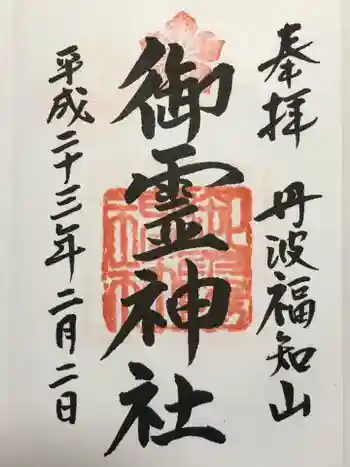 奉拝
丹波福知山
御霊神社
平成二十三年二月二日